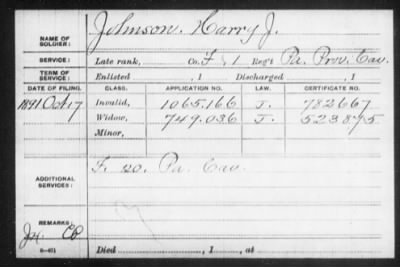 NAME OF SOLDIER: Johnson, Harry J.
SERVICE: Late rank, Co. F, 1 Reg't Pa. Prov. Cav.
TERM OF SERVICE: Enlisted , 1 Discharged , 1
DATE OF FILING. CLASS. APPLICATION NO. LAW. CERTIFICATE NO.
1891 Oct 17 Invalid, 1065.166 J. 782667
Widow, 749.036 J. 523875
Minor,
ADDITIONAL SERVICES: F. 20. Pa. Cav.
REMARKS:
Died , 1 , at